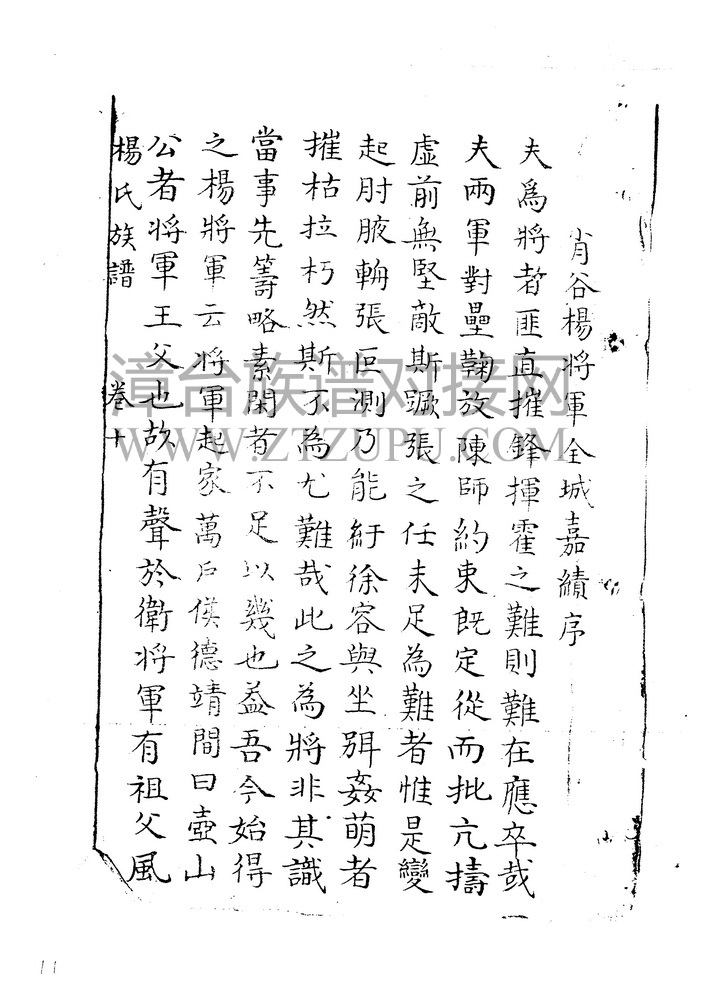 肖谷楊將軍全城嘉績序
夫為將者匪直摧鋒揮霍之難則難在應卒哉
夫兩軍對壘鞠放陳師約束既定從而批亢擣
虛前無堅敵斯蹶張之任未足為難者惟是變
起肘腋輈張叵測乃能紆徐容與坐弭姦萌者
摧枯拉朽然斯不為尤難哉此之為將非其識
當事先籌略素閑者不足以幾也益吾今始得
之楊將軍云將軍起家萬戶侯德靖間曰壺山
公者將軍王父也故有聲於衛將軍有祖父風
楊氏族譜 卷十
漳台族谱对接网
WWW.ZTZUPU.COM
11